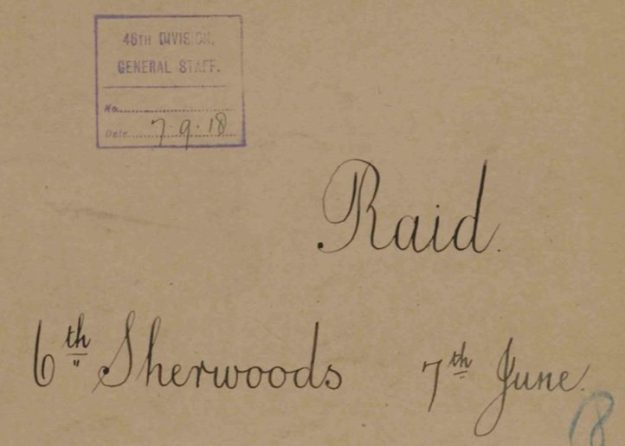 46TH DIVISION,
GENERAL STAFF.
No.
Date 7.9.18
Raid.
6th Sherwoods 7th June.